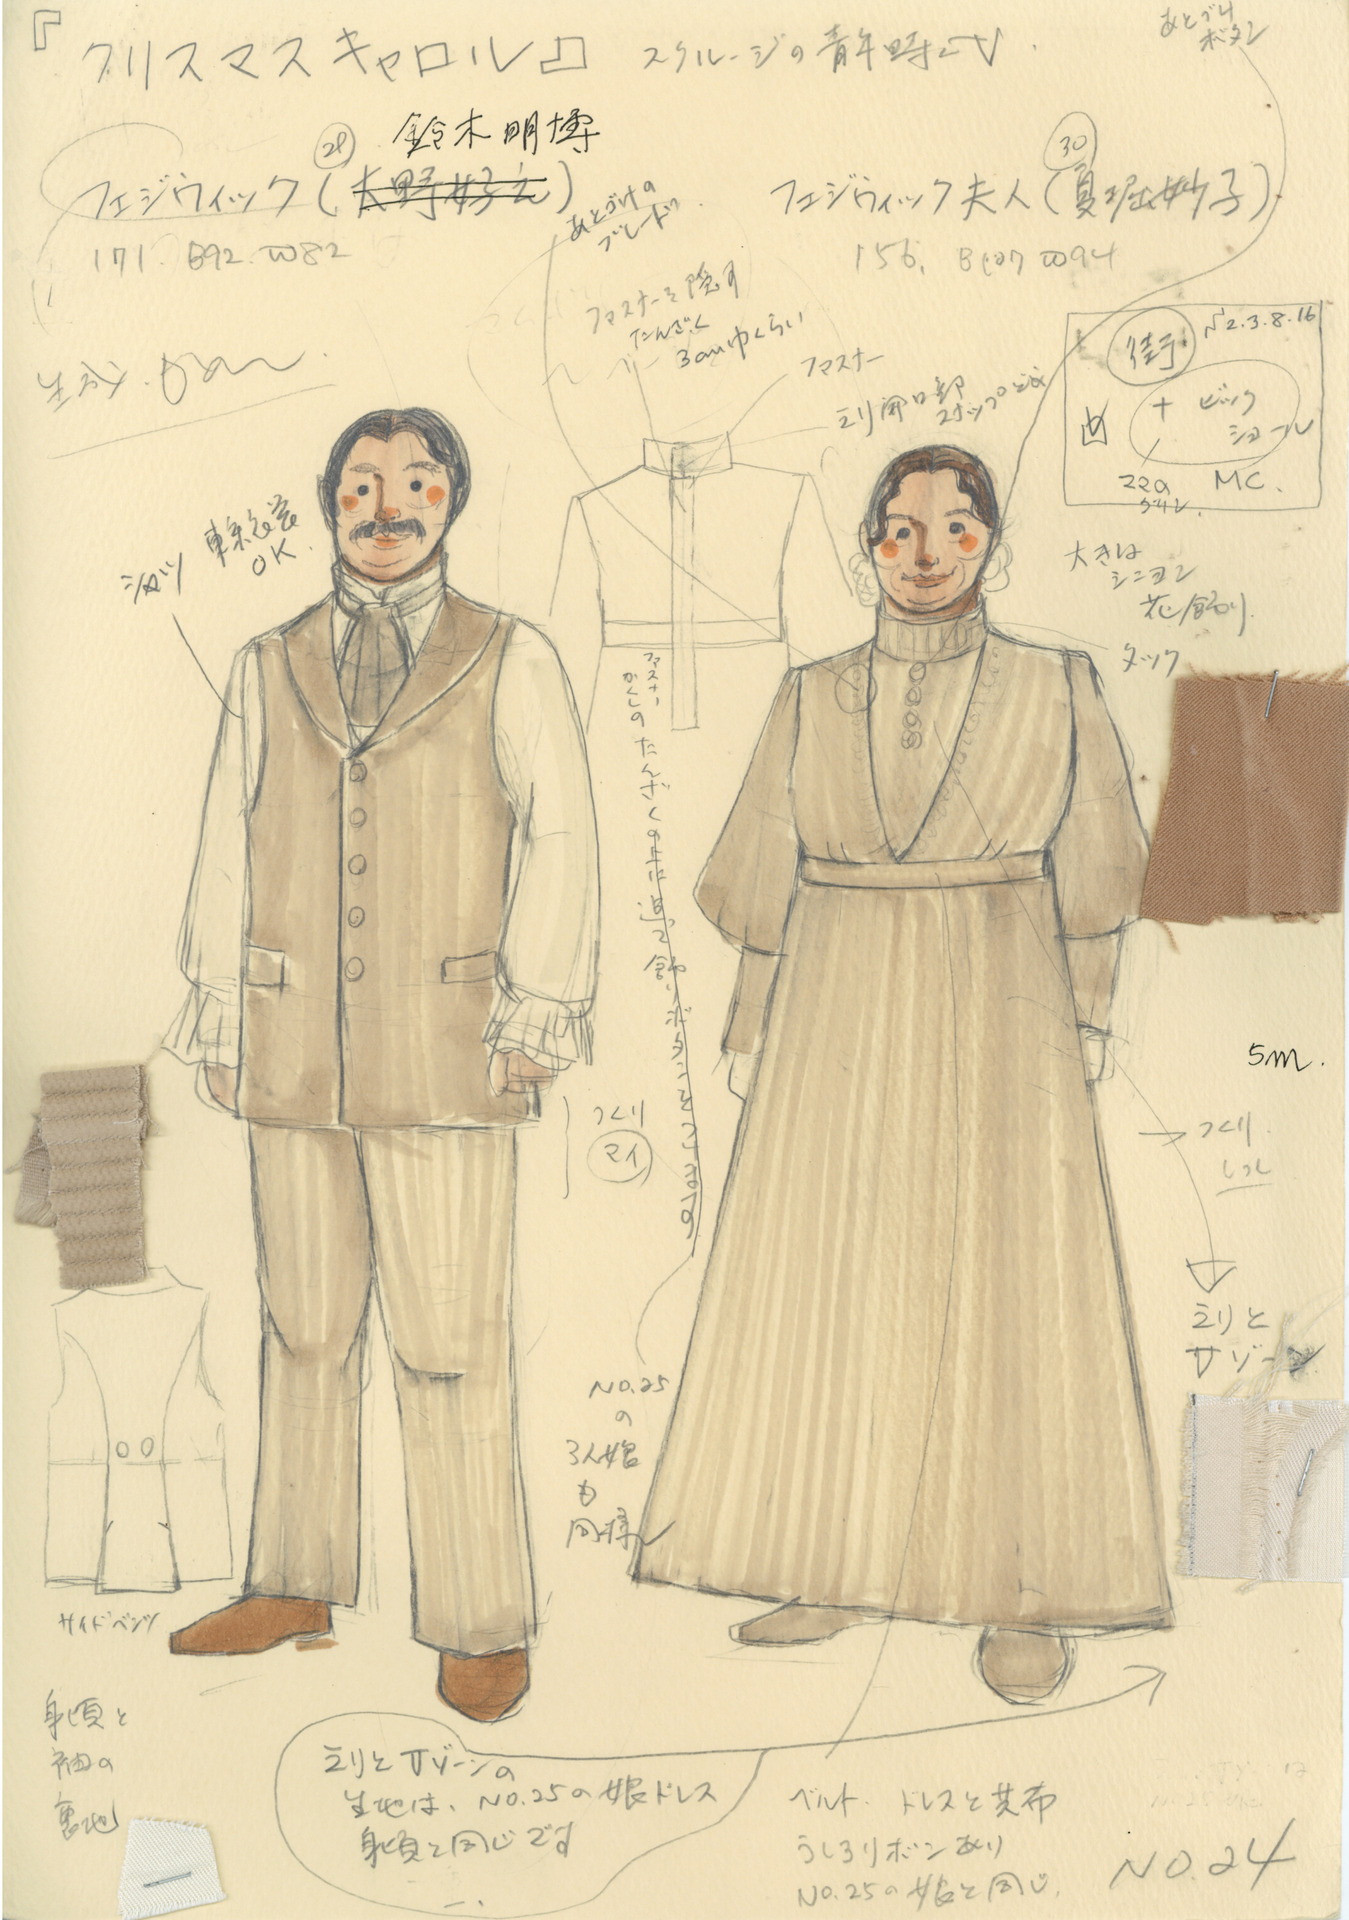 『クリスマスキャロル』 スクルージの青年時代
あとづけ
ボタン
鈴木明博
フェジウィック(
171. B92. W82
30
フェジウィック夫人(夏堀妙子)
156. B107 W94
あとづけの
ブレード
ファスナーを隠す
たんざく
3cm巾くらい
ファスナー
エリ開口部
スナップどめ
街
2.3.8.16
+ ビック
ショール
MC.
シャツ
OK.
大きな
シニヨン
花飾り
タック
ファスナー
かくしの
たんざくの上に
飾りボタン
5m.
つくり
マイ
つくり
エリと
Vゾーン
NO.25
の
3人娘
も
同様
サイドベンツ
身頃と
袖の
裏地
エリとVゾーンの
生地は、NO.25の娘ドレス
身頃と同じです
ベルト. ドレスと共布
うしろリボンあり
NO.25の娘と同じ.
NO.24